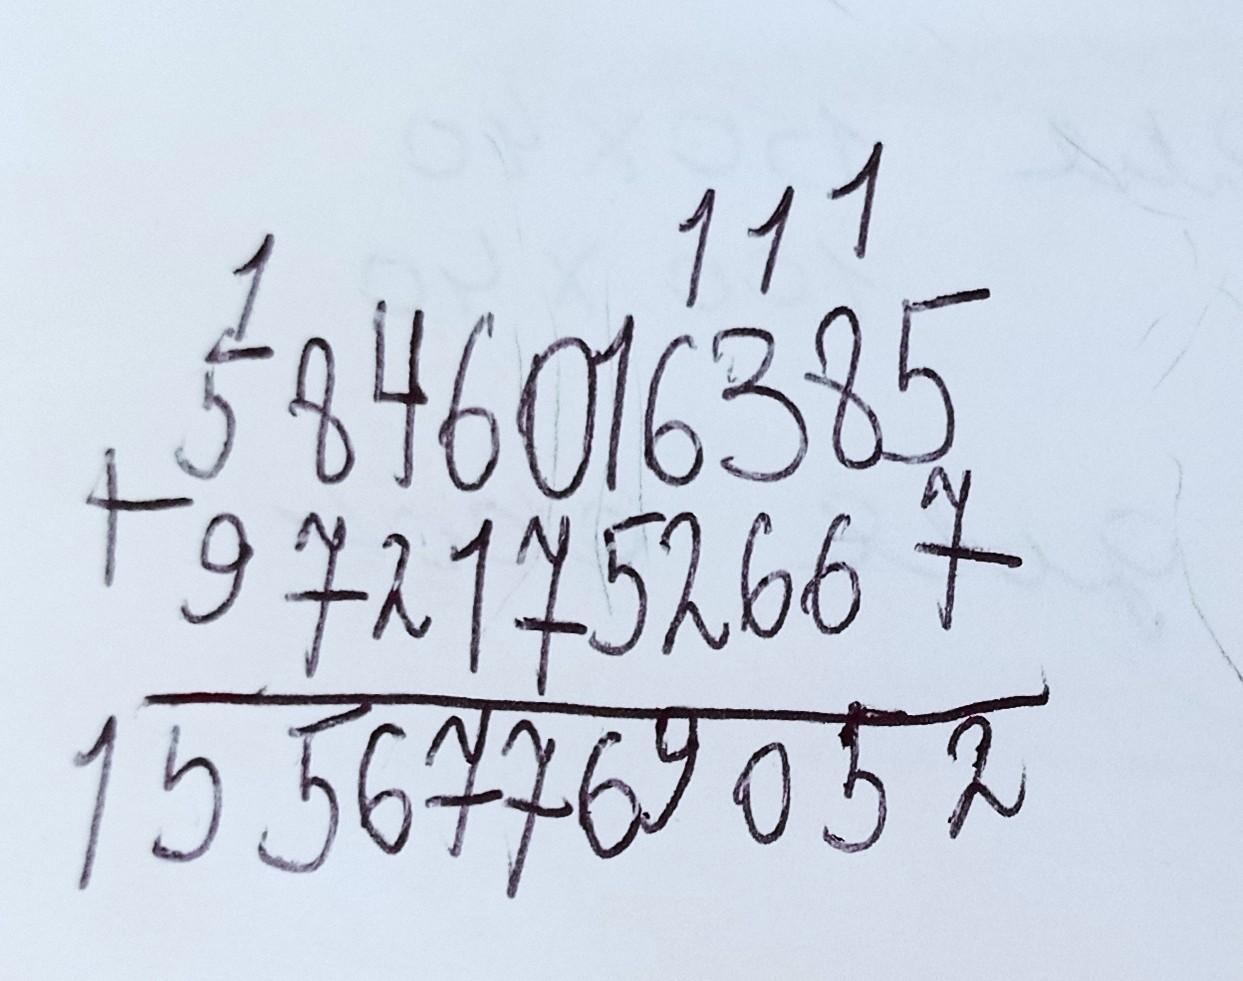 1 1 1 1
5846016385
+ 9721752667
15567769052